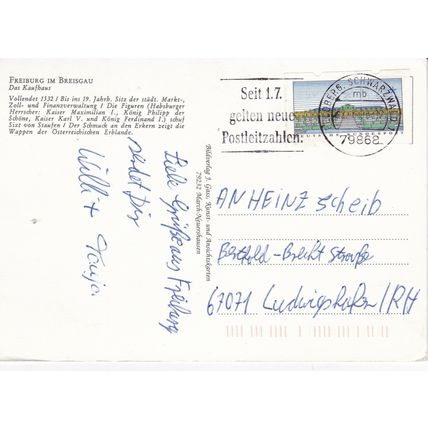 FREIBURG IM BREISGAU
Das Kaufhaus
Vollendet 1532 / Bis ins 19. Jahrh. Sitz der städt. Markt-,
Zoll- und Finanzverwaltung / Die Figuren (Habsburger
Herrscher: Kaiser Maximilian I., König Philipp der
Schöne, Kaiser Karl V. und König Ferdinand I.) schuf
Sixt von Staufen / Der Schmuck an den Erkern zeigt die
Wappen der Österreichischen Erblande.
Seit 1.7.
gelten neue
Postleitzahlen.
SCHWARZWALD
mb
79868
Liebe Grüße aus Freiburg
sendet Dir
Willi + Tanja
Bildverlag J. Gass, Kunst- und Ansichtskarten
79232 March-Neuershausen
AN HEINZ Scheib
Bertold-Brecht Straße
67071 Ludwigshafen/RH